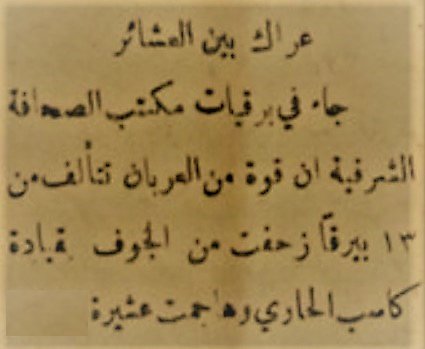 عراك بين العشائر
جاء في برقيات مكتب الصحافة
الشرقية ان قوة من العربان تتألف من
١٣ بيرقاً زحفت من الجوف بقيادة
كاسب الحاري وهاجمت عشيرة